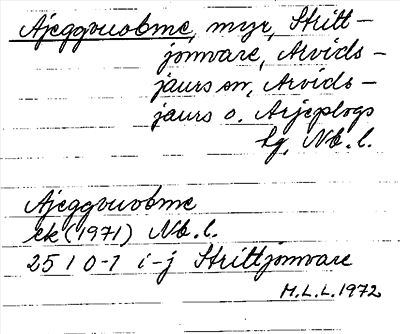 Ajeggvuobme, myr, Stritt-
jomvare, Arvids-
jaurs sn, Arvids-
jaurs o. Arjeplogs
lg, Nb. l.
Ajeggvuobme
ek (1971) Nb. l.
25 I 0-1 i-j Strittjomvare
H.L.L. 1972